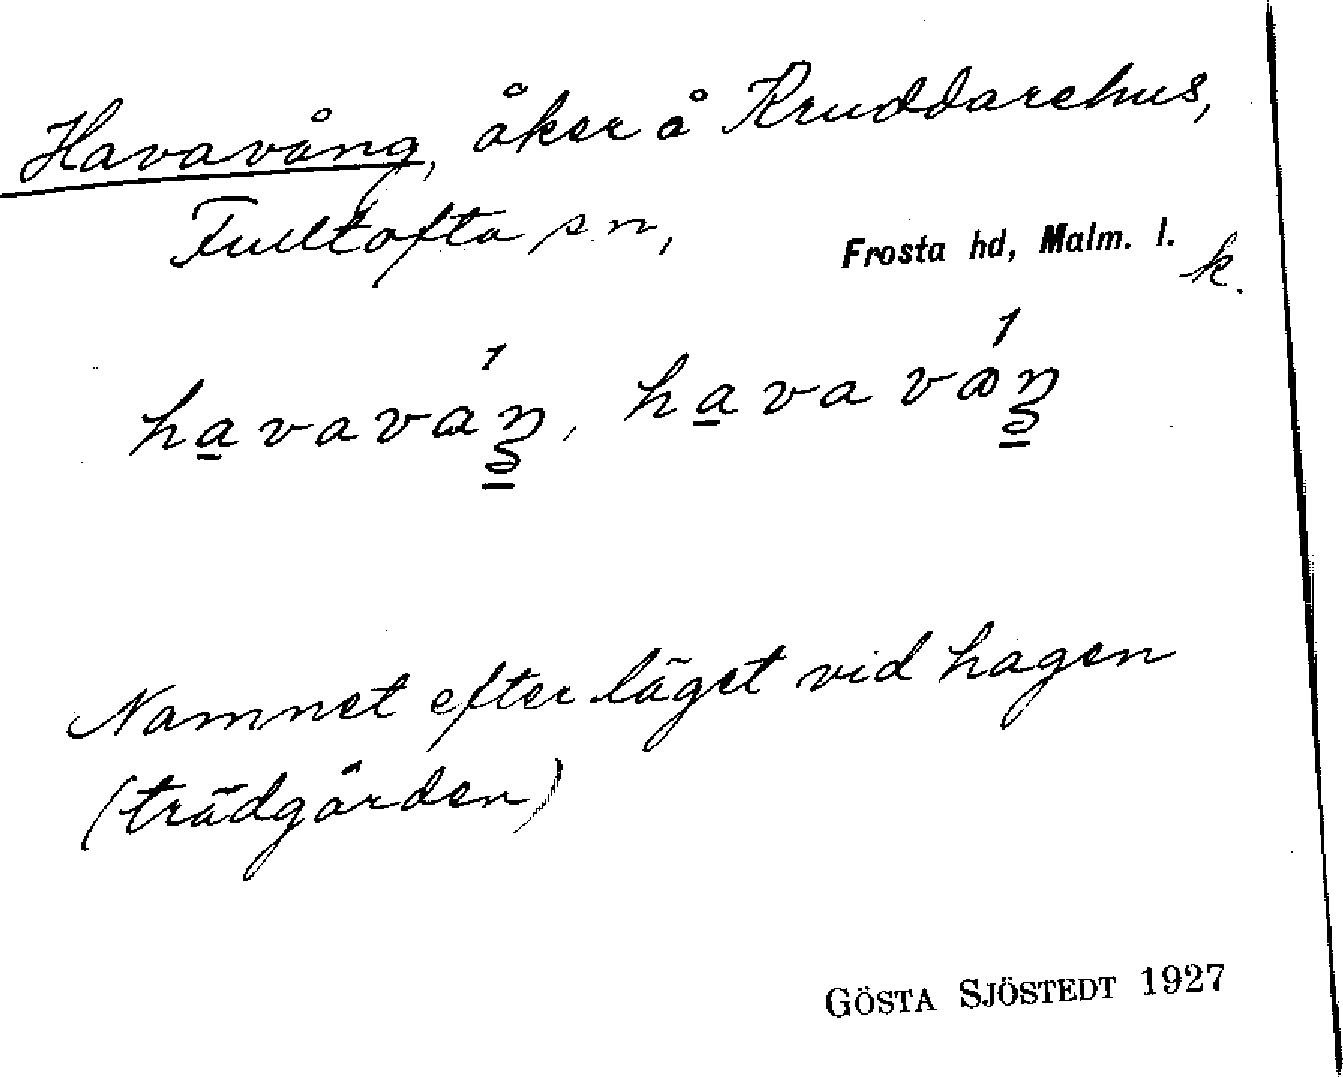 Havavång, åker å Kruddarehus,
Fultofta sn,
Frosta hd, Malm. l.
k.
havaváŋ, havavá̊ŋ
Namnet efter läget vid hagen
(trädgården)
GÖSTA SJÖSTEDT 1927